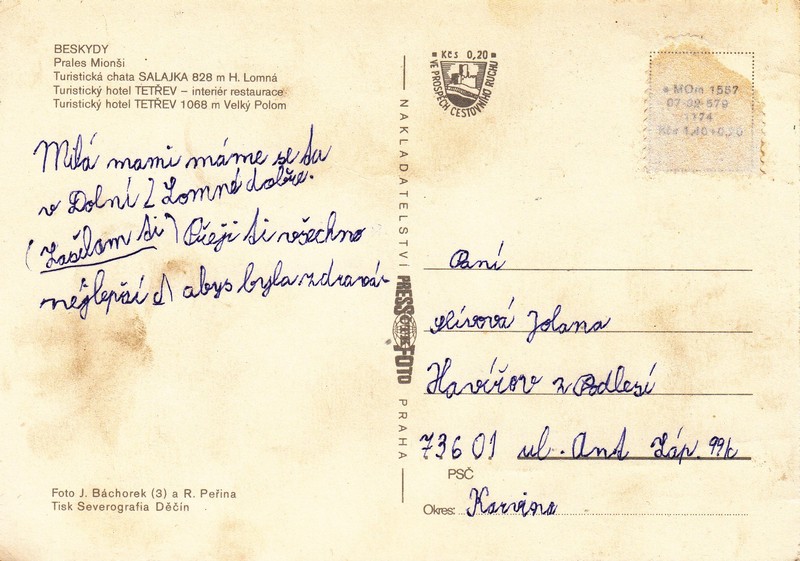 BESKYDY
Prales Mionši
Turistická chata SALAJKA 828 m H. Lomná
Turistický hotel TETŘEV – interiér restaurace
Turistický hotel TETŘEV 1068 m Velký Polom
Milá mami máme se tu
v Dolní Lomné dobře.
(Zasílam Ti) Přeji Ti všechno
nejlepší a abys byla zdravá.
Foto J. Báchorek (3) a R. Peřina
Tisk Severografia Děčín
NAKLADATELSTVÍ PRESSFOTO PRAHA
Kčs 0,20
VE PROSPĚCH CESTOVNÍHO RUCHU
MOm 1587
07-02-579
1174
Kčs
Paní
Jolana
Havířov z Podlesí
73601 ul. Ant Záp. 99k
PSČ
Okres: Karvina